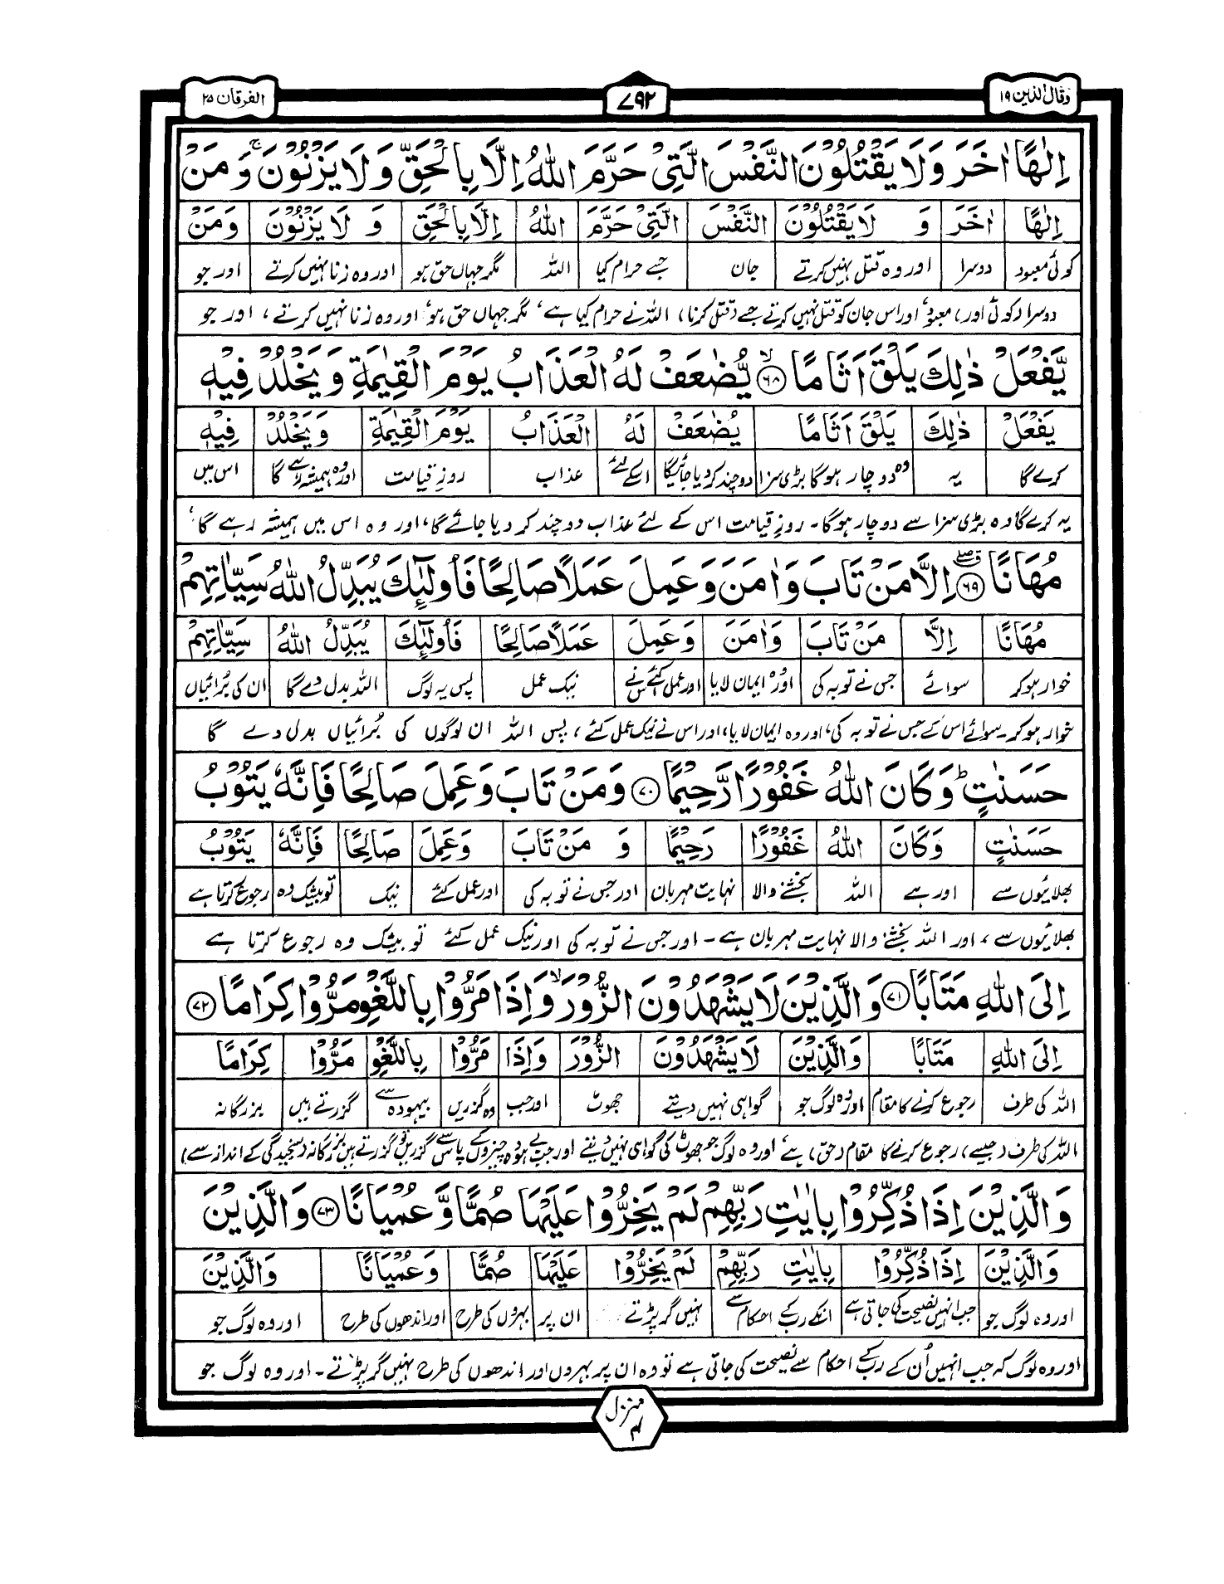 وقال الذين ۱۹
۷۹۲
الفرقان ۲۵
اِلٰهًا اٰخَرَ وَلَا يَقْتُلُوْنَ النَّفْسَ الَّتِىْ حَرَّمَ اللّٰهُ اِلَّا بِالْحَقِّ وَلَا يَزْنُوْنَ ۚ وَمَنْ
اِلٰهًا اٰخَرَ وَ لَا يَقْتُلُوْنَ النَّفْسَ الَّتِىْ حَرَّمَ اللّٰهُ اِلَّا بِالْحَقِّ وَ لَا يَزْنُوْنَ وَمَنْ
کوئی معبود دوسرا اور وہ قتل نہیں کرتے جان جسے حرام کیا اللہ مگر جہاں حق ہو اور وہ زنا نہیں کرتے اور جو
دوسرا (کوئی اور) معبود، اور اس جان کو قتل نہیں کرتے جسے (قتل کرنا) اللہ نے حرام کیا ہے، مگر جہاں حق ہو، اور وہ زنا نہیں کرتے، اور جو
يَّفْعَلْ ذٰلِكَ يَلْقَ اَثَامًا ۙ ۶۸ يُّضٰعَفْ لَهُ الْعَذَابُ يَوْمَ الْقِيٰمَةِ وَيَخْلُدْ فِيْهٖ
يَفْعَلْ ذٰلِكَ يَلْقَ اَثَامًا يُضٰعَفْ لَهُ الْعَذَابُ يَوْمَ الْقِيٰمَةِ وَيَخْلُدْ فِيْهٖ
کرے گا یہ وہ دوچار ہوگا بڑی سزا دوچند کردیا جائیگا اسکے لئے عذاب روزِ قیامت اور وہ ہمیشہ رہے گا اس میں
یہ کرے گا وہ بڑی سزا سے دوچار ہوگا۔ روزِ قیامت اس کے لئے عذاب دوچند کر دیا جائے گا، اور وہ اس میں ہمیشہ رہے گا،
مُهَانًا ۶۹ اِلَّا مَنْ تَابَ وَاٰمَنَ وَعَمِلَ عَمَلًا صَالِحًا فَاُولٰٓئِكَ يُبَدِّلُ اللّٰهُ سَيِّاٰتِهِمْ
مُهَانًا اِلَّا مَنْ تَابَ وَاٰمَنَ وَعَمِلَ عَمَلًا صَالِحًا فَاُولٰٓئِكَ يُبَدِّلُ اللّٰهُ سَيِّاٰتِهِمْ
خوار ہوکر سوائے جس نے توبہ کی اور وہ ایمان لایا اور عمل کئے اس نے نیک عمل پس یہ لوگ اللہ بدل دے گا ان کی برائیاں
خوار ہوکر۔ سوائے اس کے جس نے توبہ کی، اور وہ ایمان لایا، اور اس نے نیک عمل کئے، پس اللہ ان لوگوں کی برائیاں بدل دے گا
حَسَنٰتٍ ؕ وَكَانَ اللّٰهُ غَفُوْرًا رَّحِيْمًا ۷۰ وَمَنْ تَابَ وَعَمِلَ صَالِحًا فَاِنَّهٗ يَتُوْبُ
حَسَنٰتٍ وَكَانَ اللّٰهُ غَفُوْرًا رَحِيْمًا وَ مَنْ تَابَ وَعَمِلَ صَالِحًا فَاِنَّهٗ يَتُوْبُ
بھلائیوں سے اور ہے اللہ بخشنے والا نہایت مہربان اور جس نے توبہ کی اور عمل کئے نیک تو بیشک وہ رجوع کرتا ہے
بھلائیوں سے، اور اللہ بخشنے والا نہایت مہربان ہے۔ اور جس نے توبہ کی اور نیک عمل کئے تو بیشک وہ رجوع کرتا ہے
اِلَى اللّٰهِ مَتَابًا ۷۱ وَالَّذِيْنَ لَا يَشْهَدُوْنَ الزُّوْرَ ۙ وَاِذَا مَرُّوْا بِاللَّغْوِ مَرُّوْا كِرَامًا ۷۲
اِلَى اللّٰهِ مَتَابًا وَالَّذِيْنَ لَا يَشْهَدُوْنَ الزُّوْرَ وَاِذَا مَرُّوْا بِاللَّغْوِ مَرُّوْا كِرَامًا
اللہ کی طرف رجوع کرنے کا مقام اور وہ لوگ جو گواہی نہیں دیتے جھوٹ اور جب وہ گزریں بیہودہ سے گزرتے ہیں بزرگانہ
اللہ کی طرف (جیسے) رجوع کرنے کا مقام (حق) ہے، اور وہ لوگ جو جھوٹ کی گواہی نہیں دیتے اور جب بے ہودہ چیزوں کے پاس سے گزریں تو گزرتے ہیں بزرگانہ (سنجیدگی کے انداز سے)
وَالَّذِيْنَ اِذَا ذُكِّرُوْا بِاٰيٰتِ رَبِّهِمْ لَمْ يَخِرُّوْا عَلَيْهَا صُمًّا وَّعُمْيَانًا ۷۳ وَالَّذِيْنَ
وَالَّذِيْنَ اِذَا ذُكِّرُوْا بِاٰيٰتِ رَبِّهِمْ لَمْ يَخِرُّوْا عَلَيْهَا صُمًّا وَعُمْيَانًا وَالَّذِيْنَ
اور وہ لوگ جو جب انہیں نصیحت کی جاتی ہے انکے رب کے احکام سے نہیں گر پڑتے ان پر بہروں کی طرح اور اندھوں کی طرح اور وہ لوگ جو
اور وہ لوگ کہ جب انہیں اُن کے رب کے احکام سے نصیحت کی جاتی ہے تو وہ ان پر بہروں اور اندھوں کی طرح نہیں گر پڑتے۔ اور وہ لوگ جو
منزل ۴